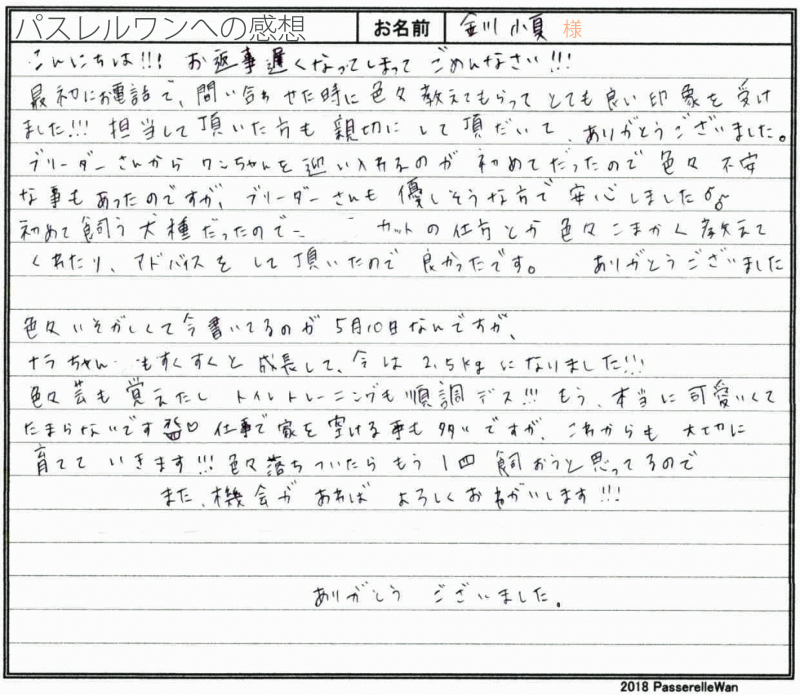 パスレルワンへの感想 お名前 金川 小夏 様
こんにちは!!! お返事遅くなってしまって ごめんなさい!!!
最初にお電話で、問い合わせた時に色々教えてもらって とても良い印象を受け
ました!!! 担当して頂いた方も 親切にして頂だいて、ありがとうございました。
ブリーダーさんから ワンちゃんを迎い入れるのが 初めてだったので色々 不安
な事もあったのですが、ブリーダーさんも 優しそうな方で 安心しました
初めて飼う犬種だったので… カットの仕方とか色々こまかく教えて
くれたり、アドバイスをして頂いたので 良かったです。 ありがとうございました
色々いそがしくて今書いてるのが 5月10日なんですが、
ナラちゃん… もすくすくと成長して、今は 2.5kgになりました!!!
色々芸も覚えたし トイレトレーニングも順調デス!!! もう、本当に可愛いくて
たまらないです 仕事で家を空ける事も多いですが、これからも 大切に
育てて いきます!!! 色々落ちついたら もう1匹 飼おうと思ってるので
また、機会が あれば よろしくおねがいします!!!
ありがとう ございました。
2018 PasserelleWan